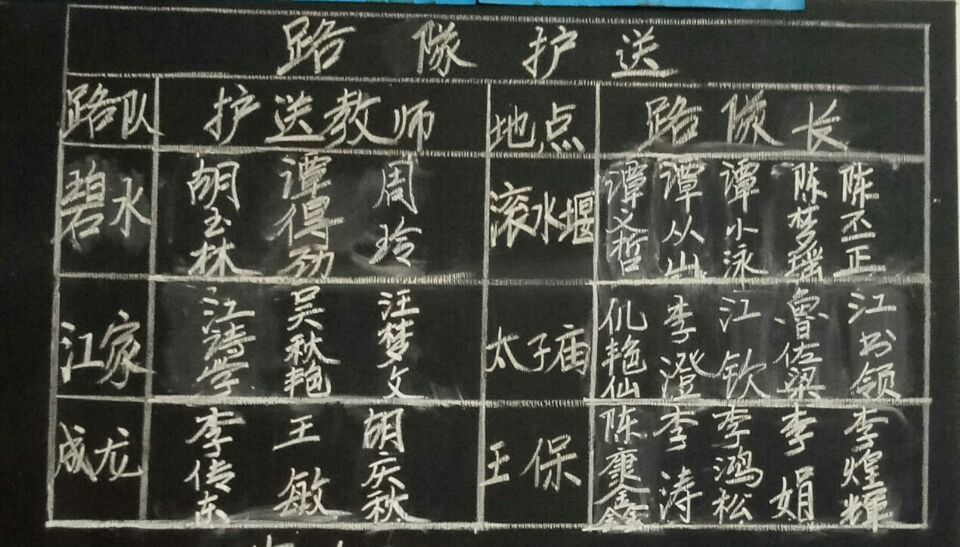 路 隊 护 送
路队 护送教师 地点 路隊长
碧水 胡玉林 谭得劲 周玲 滚水堰 谭义哲 谭从山 谭小泳 陈梦瑶 陈丕正
江家 江诗学 吴秋艳 汪梦文 太子庙 仇艳仙 李澄 江钦 鲁佐梁 江书领
成龙 李传东 王敏 胡庆秋 王保 陈康鑫 李涛 李鸿松 李娟 李煌輝